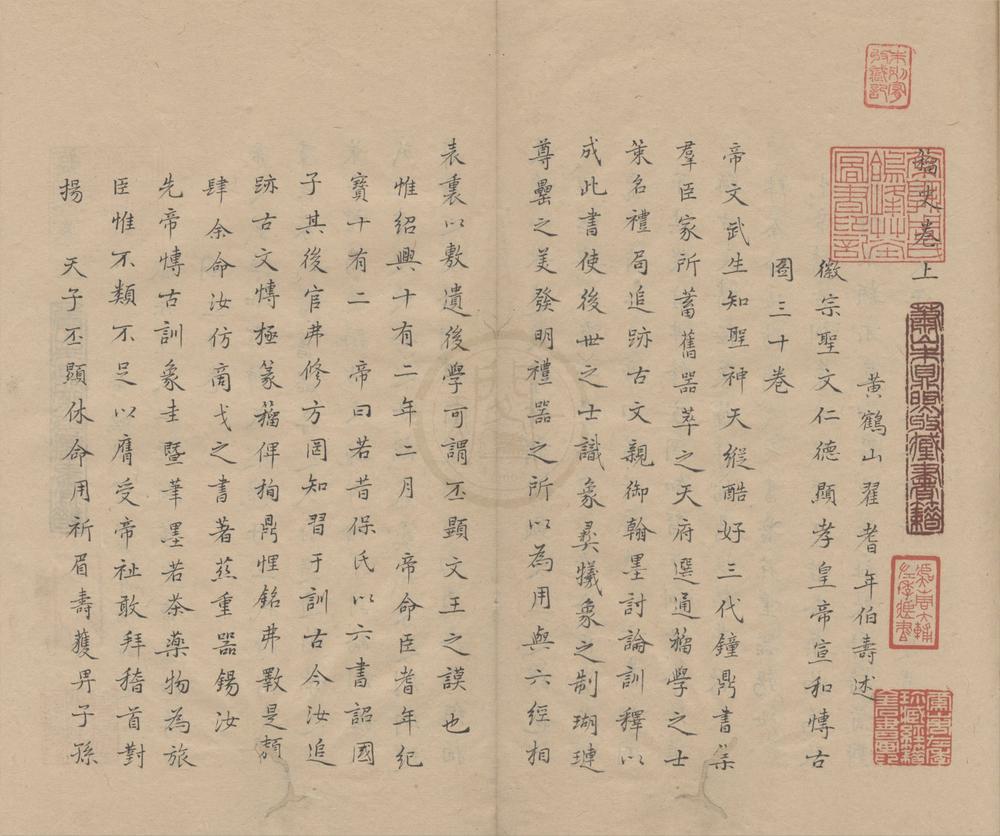 籀史卷上
黄鶴山翟耆年伯壽述
徽宗聖文仁德顯孝皇帝宣和愽古
圖三十卷
帝文武生知聖神天縱酷好三代鐘鼎書集
羣臣家所蓄舊器萃之天府選通籀學之士
策名禮局追跡古文親御翰墨討論訓釋以
成此書使後世之士識象彛犧象之制瑚璉
尊罍之美發明禮器之所以為用與六經相
表裏以敷遺後學可謂丕顯文王之謨也
惟紹興十有二年二月 帝命臣耆年紀
寶十有二 帝曰若昔保氏以六書詔國
子其後官弗修方罔知習于訓古今汝追
跡古文愽極篆籀俾狥鼎悝銘弗斁是颣
肆余命汝仿商戈之書著茲重器錫汝
先帝愽古訓象圭暨筆墨若茶藥物為旅
臣惟不類不足以膺受帝祉敢拜稽首對
揚 天子丕顯休命用祈眉壽蒦畀子孫
蕭山朱鼎煦收藏書籍
朱別宥收藏記